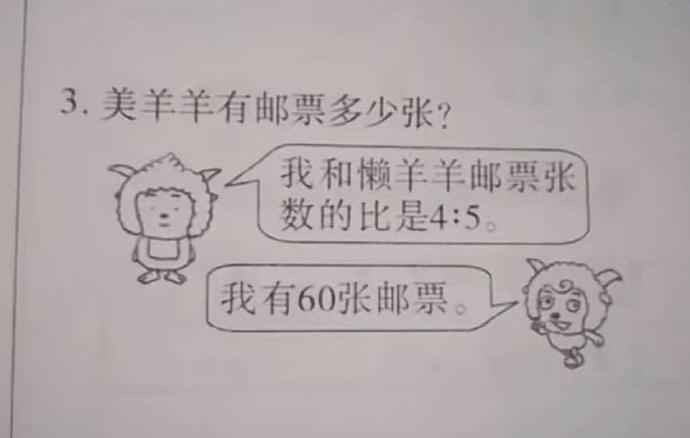 3. 美羊羊有邮票多少张?
我和懒羊羊邮票张
数的比是4:5。
我有60张邮票。